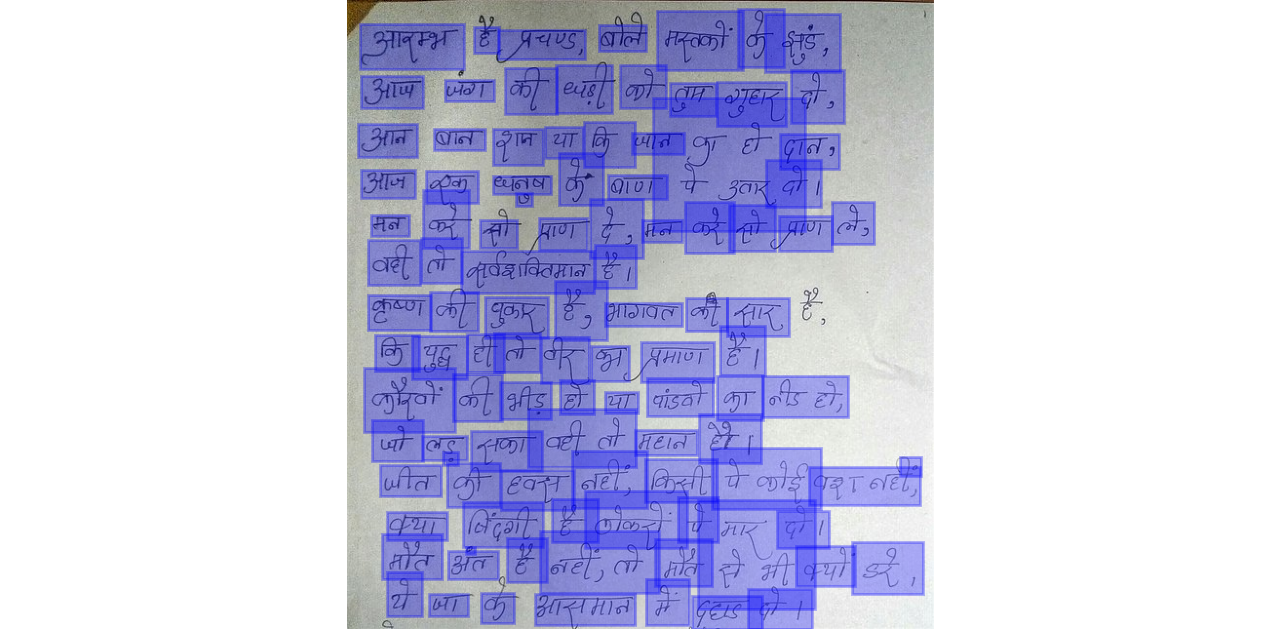 आरम्भ है प्रचण्ड, बोले मस्तकों के झुंड,
आज जंग की घड़ी को तुम गुहार दो,
आन बान शान या कि जान का हो दान,
आज एक धनुष के बाण पे उतार दो।
मन करे सो प्राण दे, मन करे सो प्राण ले,
वही तो सर्वशक्तिमान है।
कृष्ण की पुकार है, भागवत की सार है,
कि युद्ध ही तो वीर का प्रमाण है।
कौरवों की भीड़ हो या पांडवो का नीड हो,
जो लड़ सका वही तो महान है।
जीत की हवस नहीं, किसी पे कोई वश नहीं,
क्या जिंदगी है ठोकरों पे मार दो।
मौत अंत है नहीं, तो मौत से भी क्यों डरे,
ये जा के आसमान में दहाड़ दो।